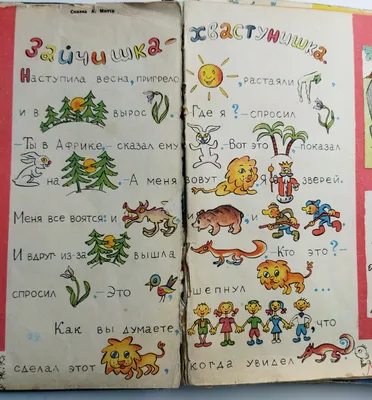 Сказка А. Митта
Зайчишка-хвастунишка.
Наступила весна, пригрело , растаяли ,
и в вырос . Где я?-спросил .
-Ты в Африке,-сказал ему .-Вот это показал
на .-А меня зовут . Я зверей.
Меня все боятся: и , и , и
И вдруг из-за вышла .-Кто это?-
спросил .-Это , шепнул ...
Как вы думаете, , что
сделал этот , когда увидел